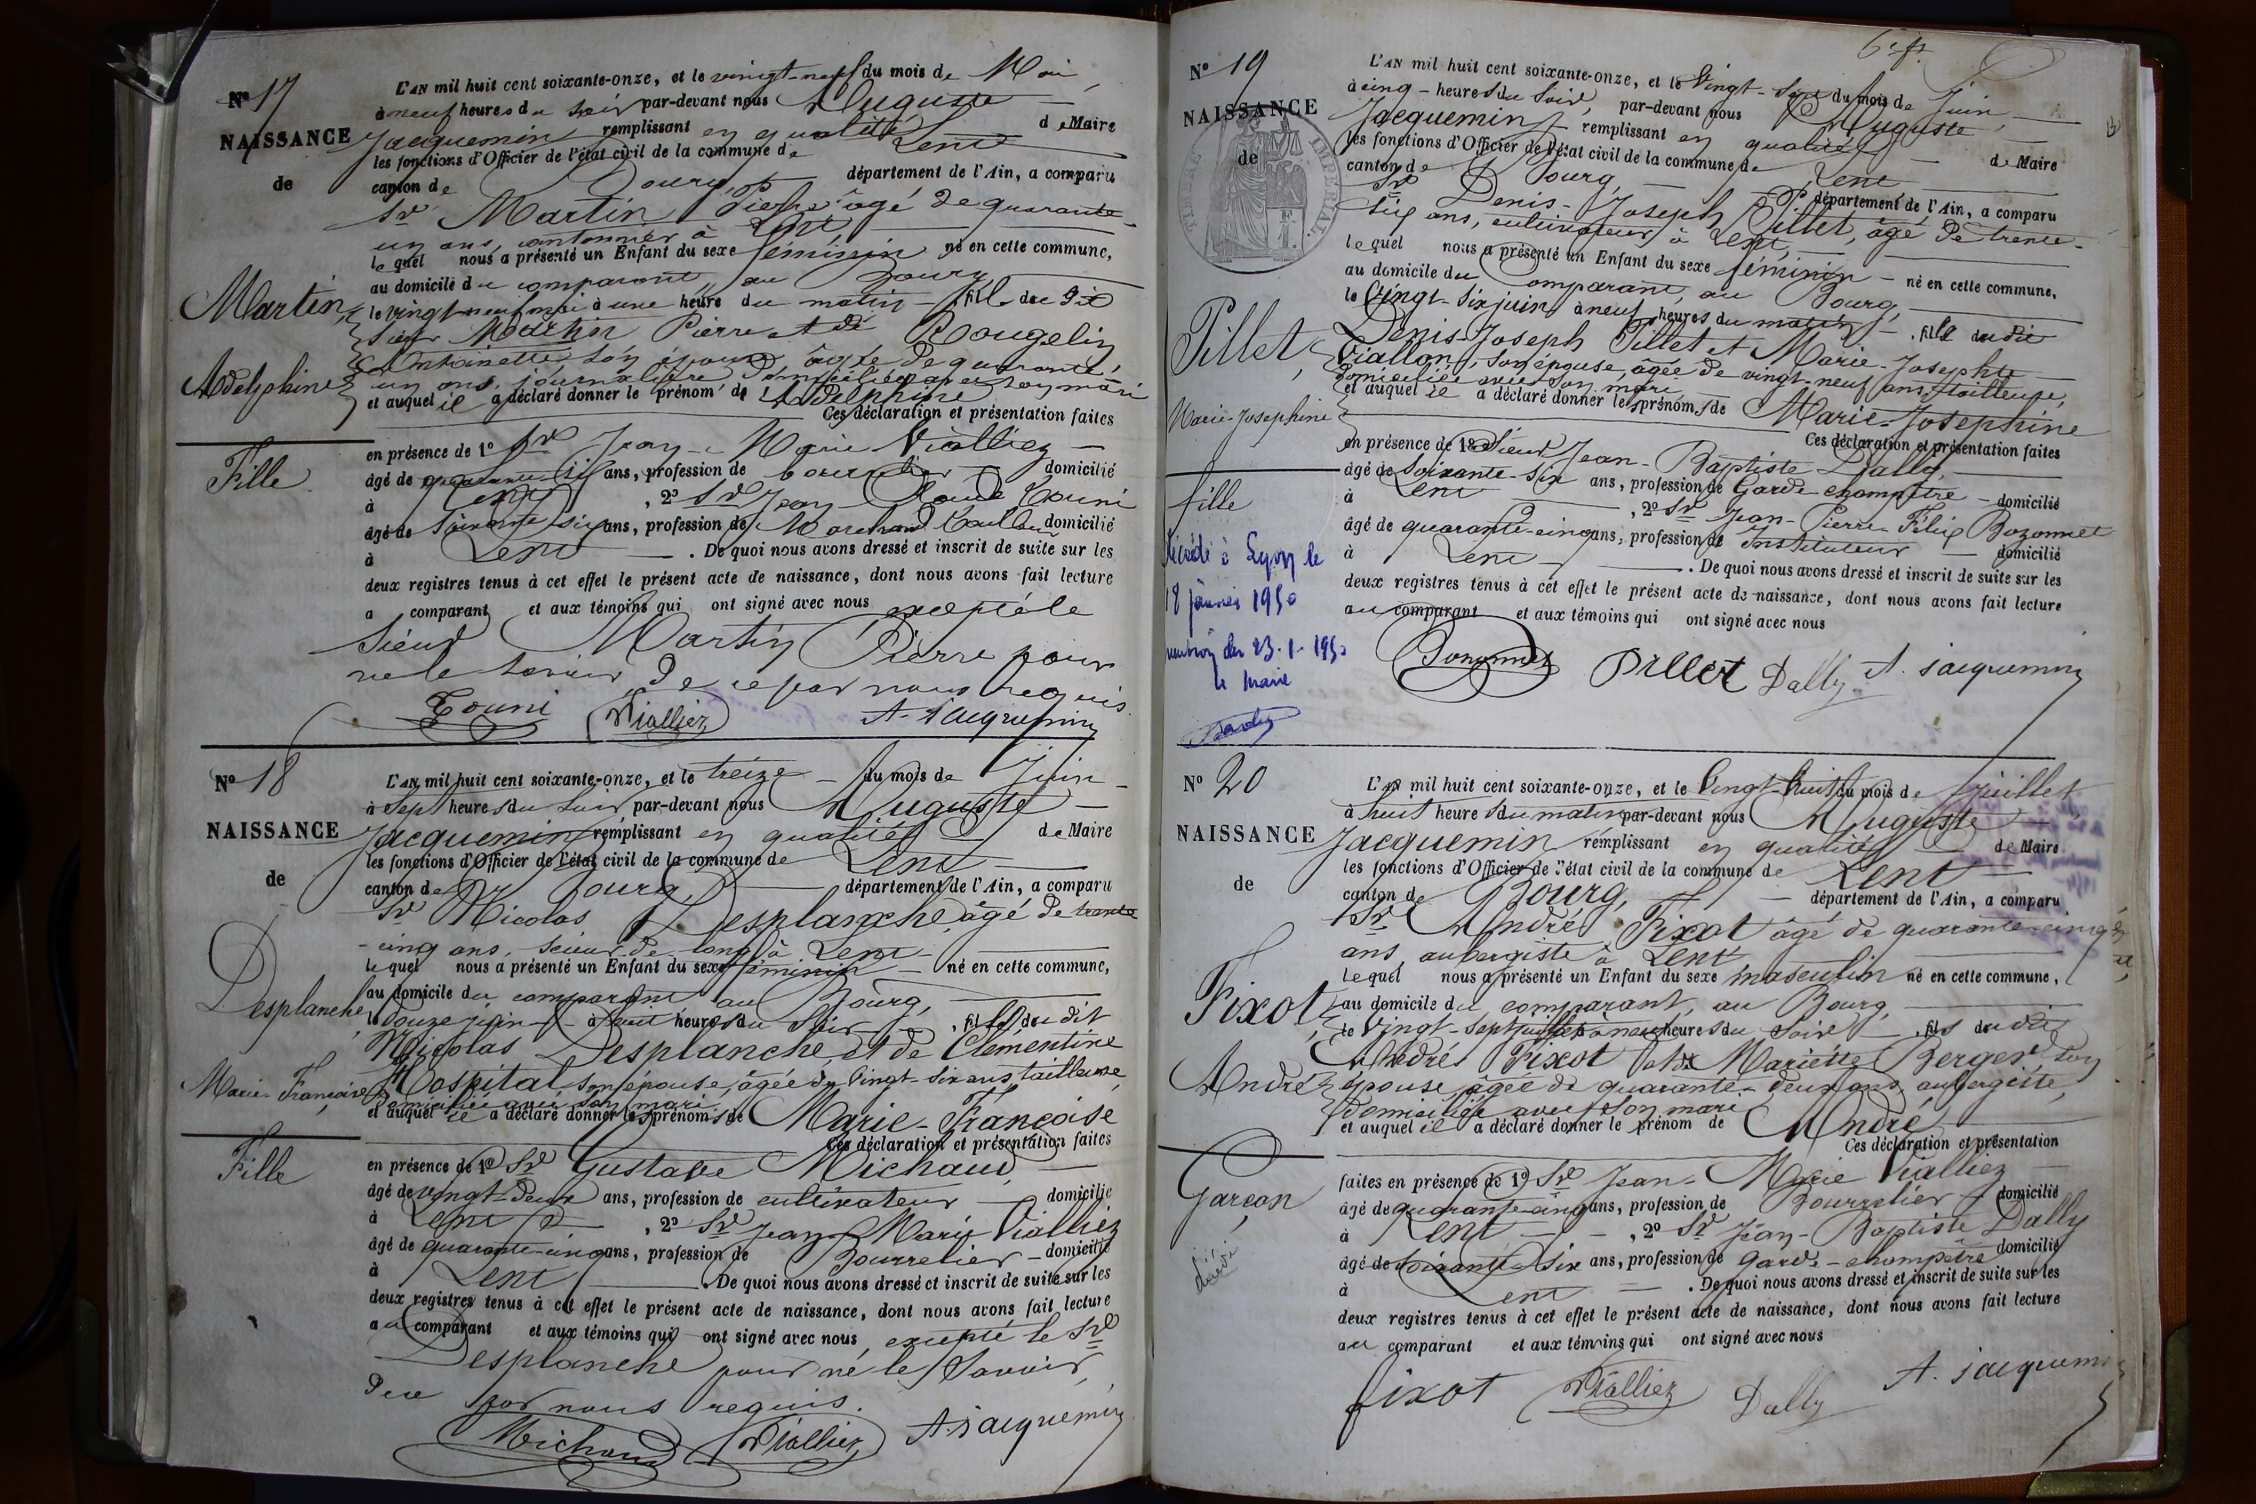 N° 17
NAISSANCE
de
Martin,
Adelphine
Fille
L'AN mil huit cent soixante-onze, et le vingt-neuf du mois de Mai,
à neuf heures du soir par-devant nous Auguste
Jacquemin remplissant en qualité de Maire
les fonctions d'Officier de l'état civil de la commune de Lent
canton de Bourg, département de l'Ain, a comparu
Sr Martin Pierre âgé de quarante-
un ans, cantonnier à Lent
lequel nous a présenté un Enfant du sexe féminin né en cette commune,
au domicile du comparant au Bourg
le vingt-neuf mai à une heure du matin fille du dit
Sieur Martin Pierre et de Rougelin
Antoinette, son épouse âgée de quarante-
un ans, journalière domiciliée avec son mari
et auquel il a déclaré donner le prénom de Adelphine
Ces déclaration et présentation faites
en présence de 1° Sr Jean-Marie Vialliez
âgé de quarante-six ans, profession de bourrelier domicilié
à Lent, 2° Sr Jean-Claude Touni
âgé de soixante-six ans, profession de Marchand domicilié
à Lent. De quoi nous avons dressé et inscrit de suite sur les
deux registres tenus à cet effet le présent acte de naissance, dont nous avons fait lecture
a comparant et aux témoins qui ont signé avec nous excepté le
Sieur Martin Pierre pour
ne le savoir, de ce par nous requis
Touni Vialliez A. Jacquemin
N° 18
NAISSANCE
de
Desplanche,
Marie-Françoise
Fille
L'AN mil huit cent soixante-onze, et le treize du mois de Juin
à sept heures du soir par-devant nous Auguste
Jacquemin remplissant en qualité de Maire
les fonctions d'Officier de l'état civil de la commune de Lent
canton de Bourg, département de l'Ain, a comparu
Sr Nicolas Desplanche, âgé de trente
-cinq ans, scieur de long à Lent
lequel nous a présenté un Enfant du sexe féminin né en cette commune,
au domicile du comparant au Bourg,
le douze juin à heures du soir, fille du dit
Nicolas Desplanche et de Clémentine
Hospital son épouse, âgée de vingt-six ans, tailleuse,
domiciliée avec son mari
et auquel il a déclaré donner les prénoms de Marie-Françoise
Ces déclaration et présentation faites
en présence de 1° Sr Gustave Michaud,
âgé de vingt-deux ans, profession de cultivateur domicilié
à Lent, 2° Sr Jean-Marie Vialliez
âgé de quarante-cinq ans, profession de Bourrelier domicilié
à Lent. De quoi nous avons dressé et inscrit de suite sur les
deux registres tenus à cet effet le présent acte de naissance, dont nous avons fait lecture
au comparant et aux témoins qui ont signé avec nous, excepté le Sr
Desplanche pour ne le savoir,
de ce par nous requis.
Michaud Vialliez A. Jacquemin
N° 19
NAISSANCE
de
TIMBRE IMPÉRIAL
Pillet,
Marie-Josephine
fille
Décédé à Lyon le
18 janvier 1950
mention du 23-1-1950
le Maire
L'AN mil huit cent soixante-onze, et le vingt-six du mois de Juin,
à cinq heures du soir, par-devant nous Auguste
Jacquemin remplissant en qualité de Maire
les fonctions d'Officier de l'état civil de la commune de Lent
canton de Bourg, département de l'Ain, a comparu
Sr Denis-Joseph Pillet, âgé de trente-
six ans, cultivateur à Lent,
lequel nous a présenté un Enfant du sexe féminin né en cette commune,
au domicile du comparant, au Bourg,
le vingt-six juin à neuf heures du matin, fille du dit
Denis-Joseph Pillet et Marie-Josephte
Viallon, son épouse, âgée de vingt-neuf ans, tailleuse,
domiciliée avec son mari
et auquel il a déclaré donner les prénoms de Marie-Josephine
Ces déclaration et présentation faites
en présence de 1° Sieur Jean-Baptiste Dally,
âgé de soixante-six ans, profession de Garde-champêtre domicilié
à Lent, 2° Sr Jean-Pierre Félix Bozonnet
âgé de quarante-cinq ans, profession de Instituteur domicilié
à Lent. De quoi nous avons dressé et inscrit de suite sur les
deux registres tenus à cet effet le présent acte de naissance, dont nous avons fait lecture
au comparant et aux témoins qui ont signé avec nous
Bozonnet Pillet Dally A. Jacquemin
N° 20
NAISSANCE
de
Fixot,
André
Garçon
L'AN mil huit cent soixante-onze, et le vingt-huit du mois de Juillet
à huit heures du matin par-devant nous Auguste
Jacquemin remplissant en qualité de Maire
les fonctions d'Officier de l'état civil de la commune de Lent
canton de Bourg, département de l'Ain, a comparu
Sr André Fixot âgé de quarante-cinq
ans, aubergiste à Lent
lequel nous a présenté un Enfant du sexe masculin né en cette commune,
au domicile du comparant, au Bourg,
le vingt-sept juillet à neuf heures du soir, fils du dit
André Fixot et de Mariette Berger son
épouse, âgée de quarante-deux ans, aubergiste,
domiciliée avec son mari
et auquel il a déclaré donner le prénom de André
Ces déclaration et présentation
faites en présence de 1° Sr Jean-Marie Vialliez
âgé de quarante-cinq ans, profession de Bourrelier domicilié
à Lent, 2° Sr Jean-Baptiste Dally
âgé de soixante-six ans, profession de Garde-champêtre domicilié
à Lent. De quoi nous avons dressé et inscrit de suite sur les
deux registres tenus à cet effet le présent acte de naissance, dont nous avons fait lecture
au comparant et aux témoins qui ont signé avec nous
fixot Vialliez Dally A. Jacquemin